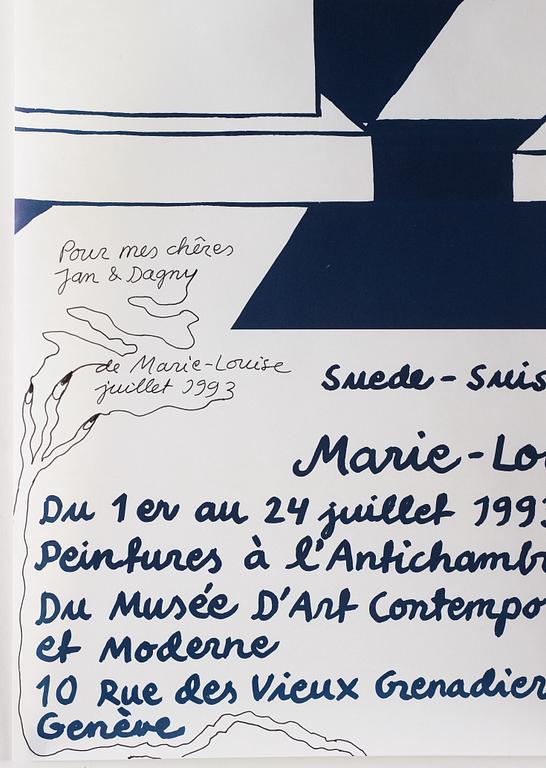 Pour mes chères
Jan & Dagny
de Marie-Louise
juillet 1993
Suede - Suis
Marie-Lo
Du 1er au 24 juillet 1993
Peintures à l'Antichamb
Du Musée D'Art Contempo
et Moderne
10 Rue des Vieux Grenadier
Genève